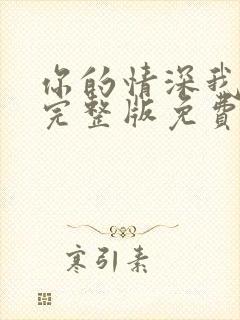 你的情深我
完整版免费
寒引素